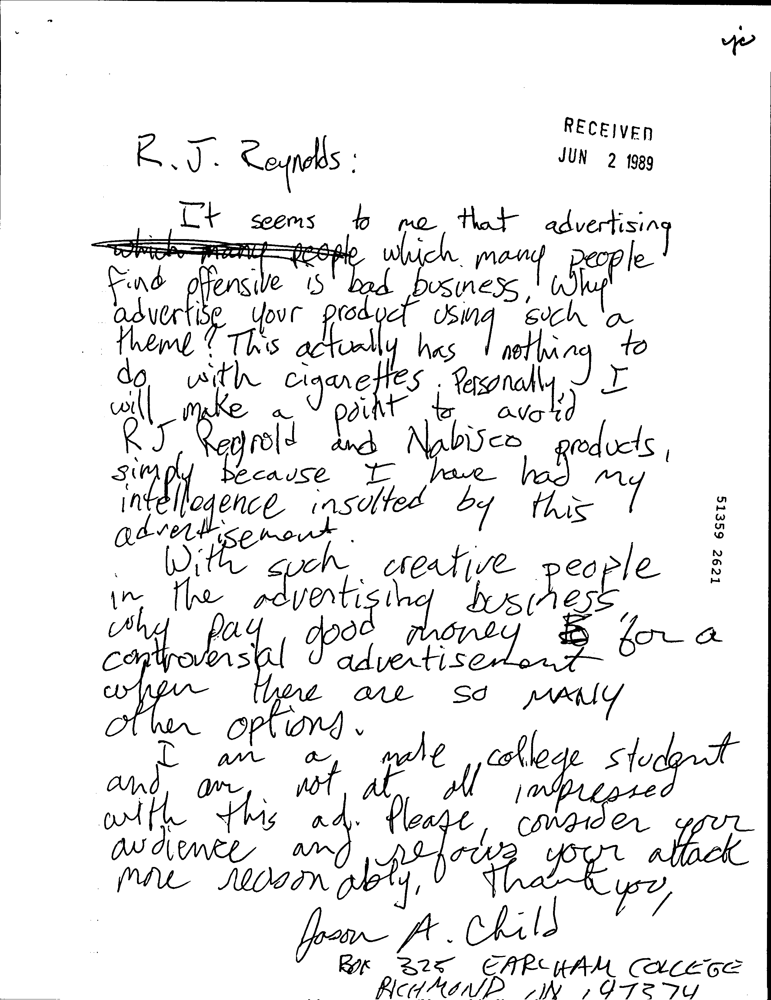 yc
RECEIVED
JUN 2 1989
R. J. Reynolds:
It seems to me that advertising
which many people which many people
find offensive is bad business. Why
advertise your product using such a
theme? This actually has nothing to
do with cigarettes. Personally, I
will make a point to avoid
R J Regnold and Nabisco products,
simply because I have had my
intellegence insulted by this
advertisement.
With such creative people
in the advertising business,
why pay good money for a
controversial advertisement
when there are so MANY
other options.
I am a male college student
and am not at all impressed
with this ad. Please, consider your
audience and refocus your attack
more reasonably. Thank you,
Jason A. Child
BOX 325 EARLHAM COLLEGE
RICHMOND, IN, 47374
51359 2621